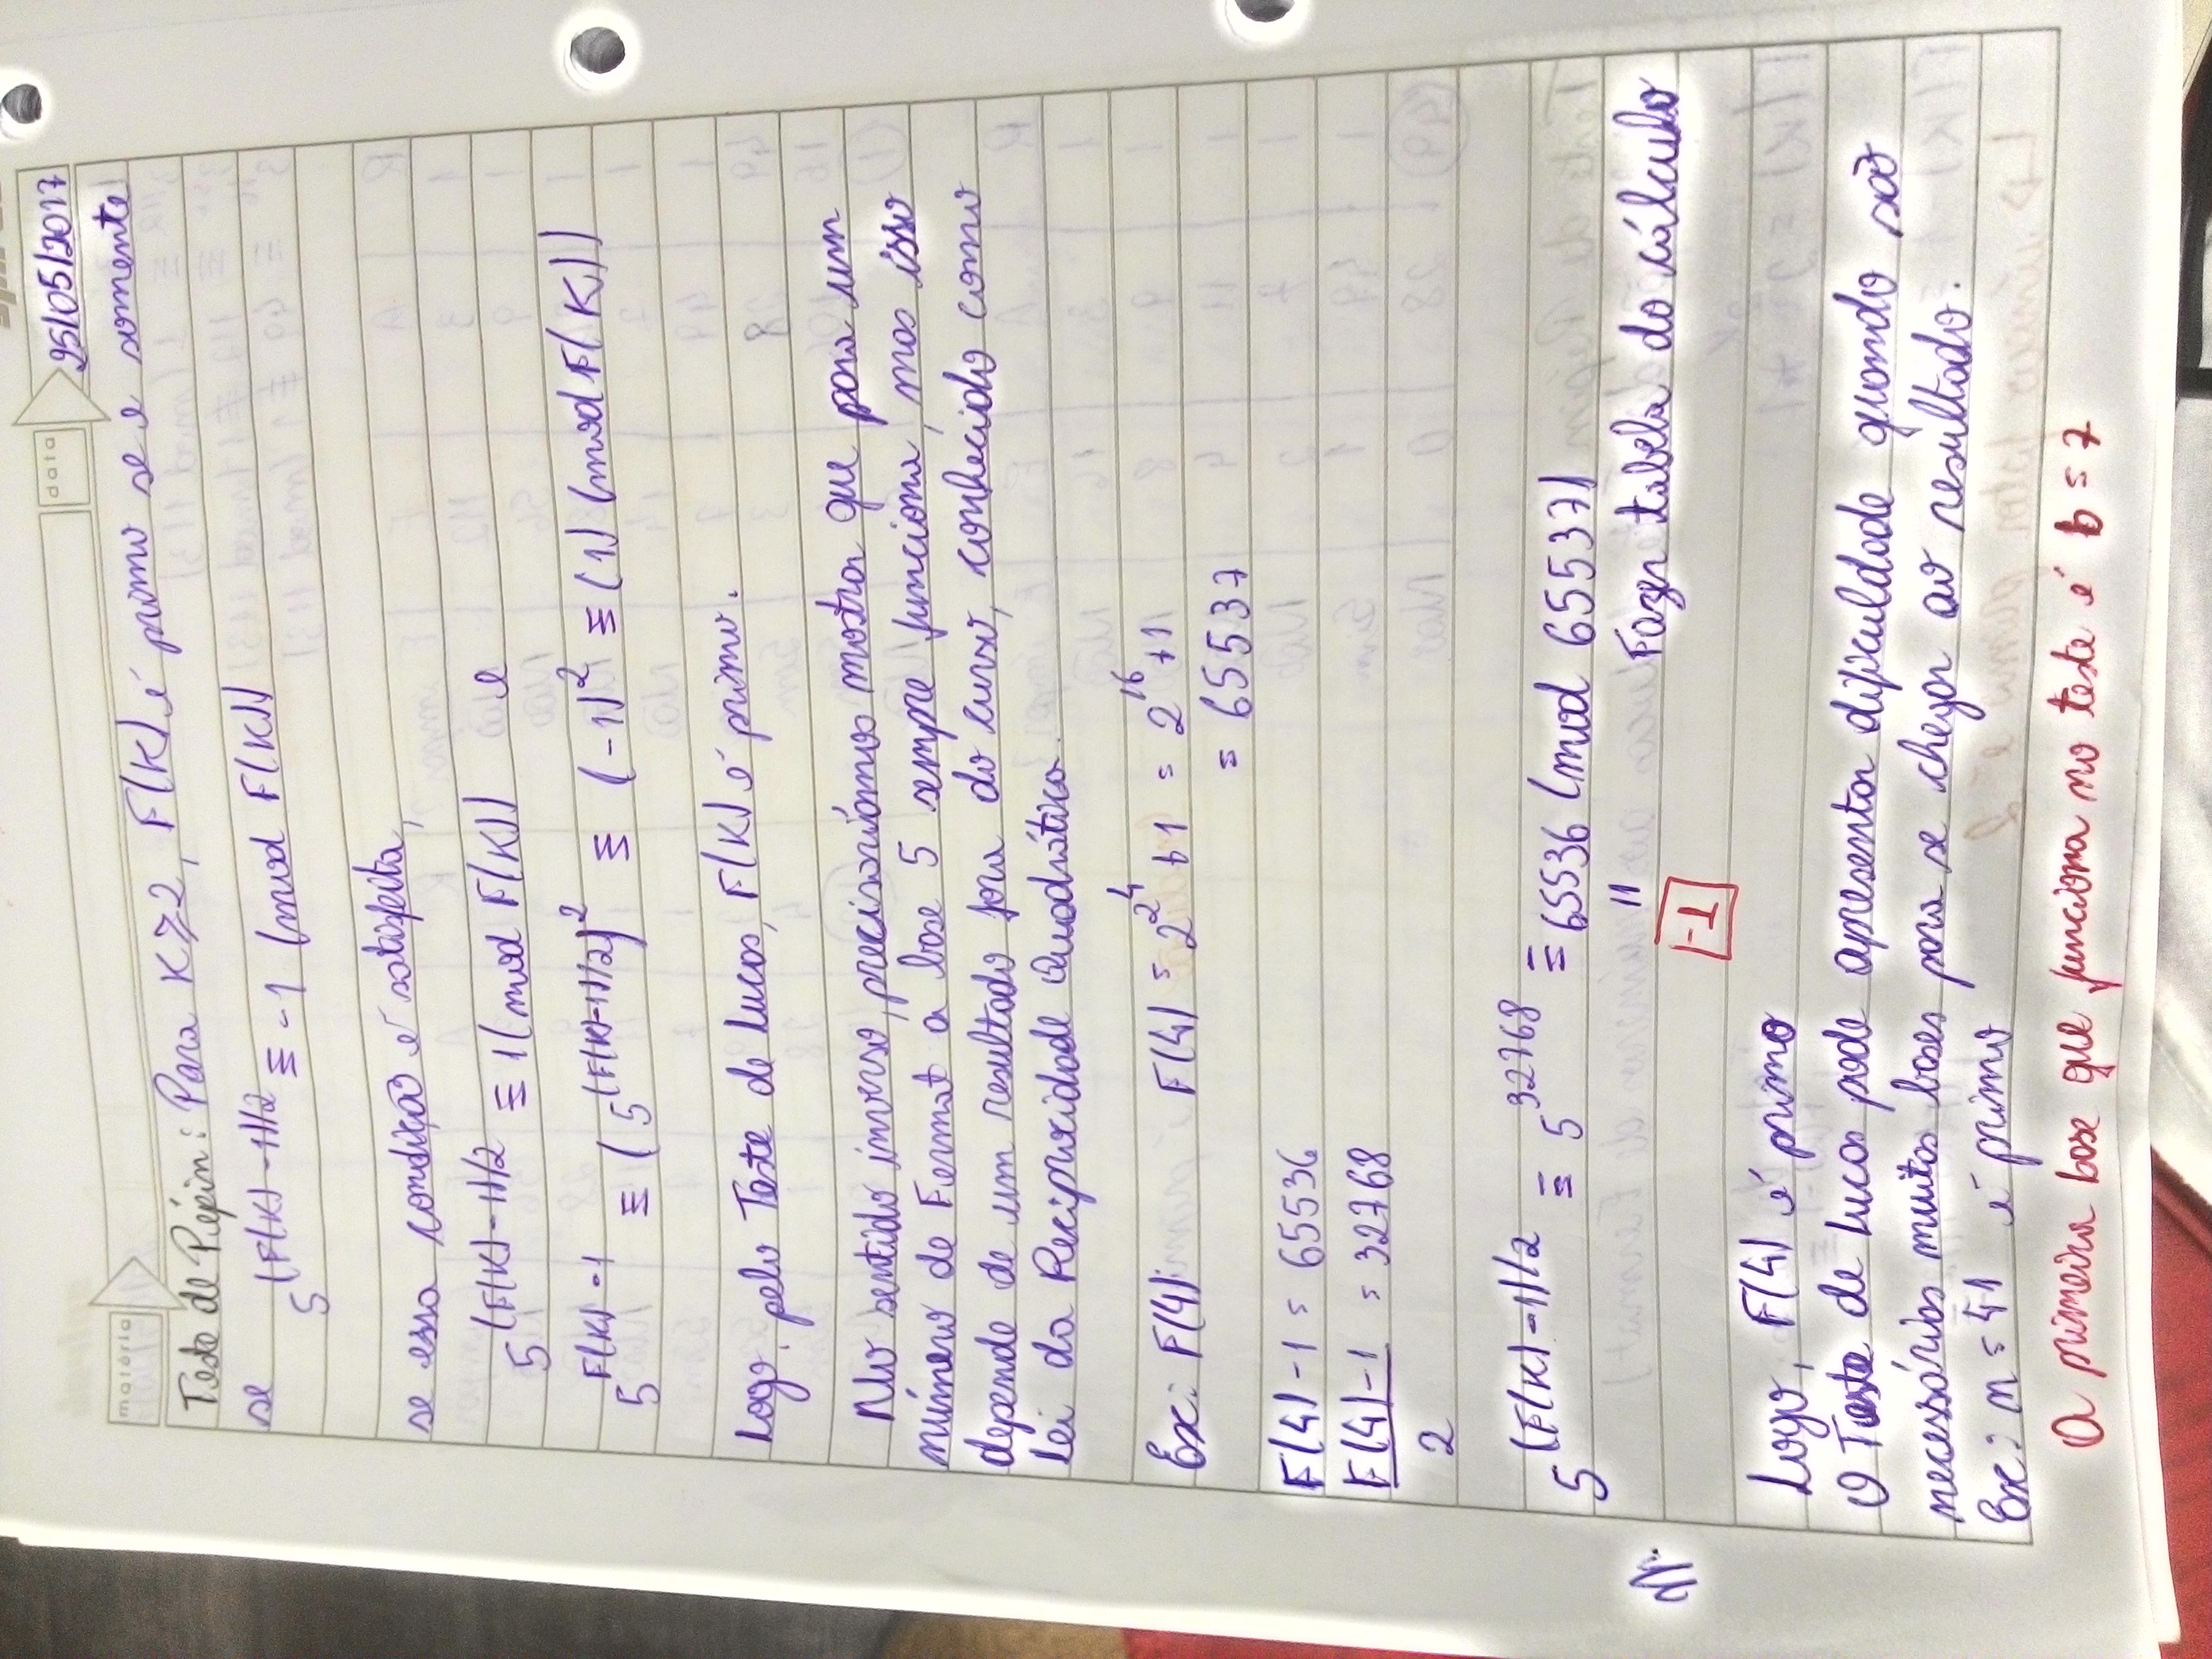 matéria
data
25/05/2017
Teste de Pépin: Para K ≥ 2, F(K) é primo se e somente
se 5^((F(K)-1)/2) ≡ -1 (mod F(K))
se essa condição é satisfeita,
5^((F(K)-1)/2) ≡ 1 (mod F(K)) e
5^(F(K)-1) ≡ (5^((F(K)-1)/2))^2 ≡ (-1)^2 ≡ (1) (mod F(K))
Logo, pelo Teste de Lucas, F(K) é primo.
No sentido inverso, precisaríamos mostra que para um
número de Fermat a base 5 sempre funciona, mas isso
depende de um resultado fora do curso, conhecido como
Lei da Reciprocidade Quadrática.
Ex: F(4): F(4) = 2^2^4 + 1 = 2^16 + 1
= 65537
F(4) - 1 = 65536
F(4) - 1 = 32768
2
5^((F(K)-1)/2) ≡ 5^32768 ≡ 65536 (mod 65537)
11 Fazer tabela do cálculo
-1
Logo, F(4) é primo
O Teste de Lucas pode apresentar dificuldade quando são
necessários muitos bases para se chegar ao resultado.
Ex: n = 41 é primo
A primeira base que funciona no teste é b = 7